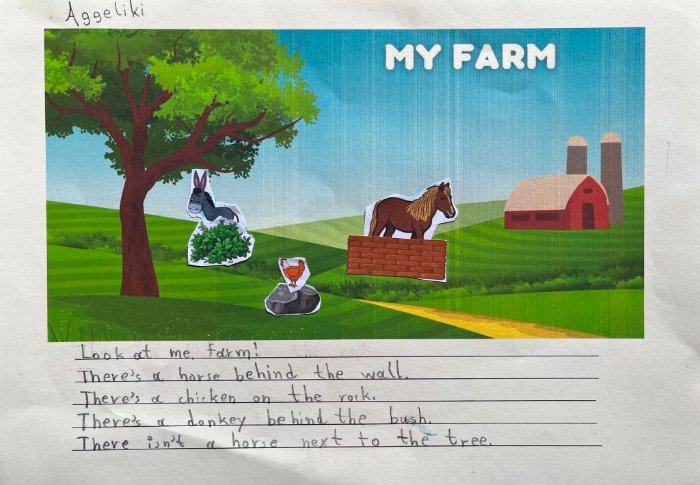 Aggeliki
MY FARM
Look at me farm!
There's a horse behind the wall.
There's a chicken on the rock.
There's a donkey behind the bush.
There isn't a horse next to the tree.